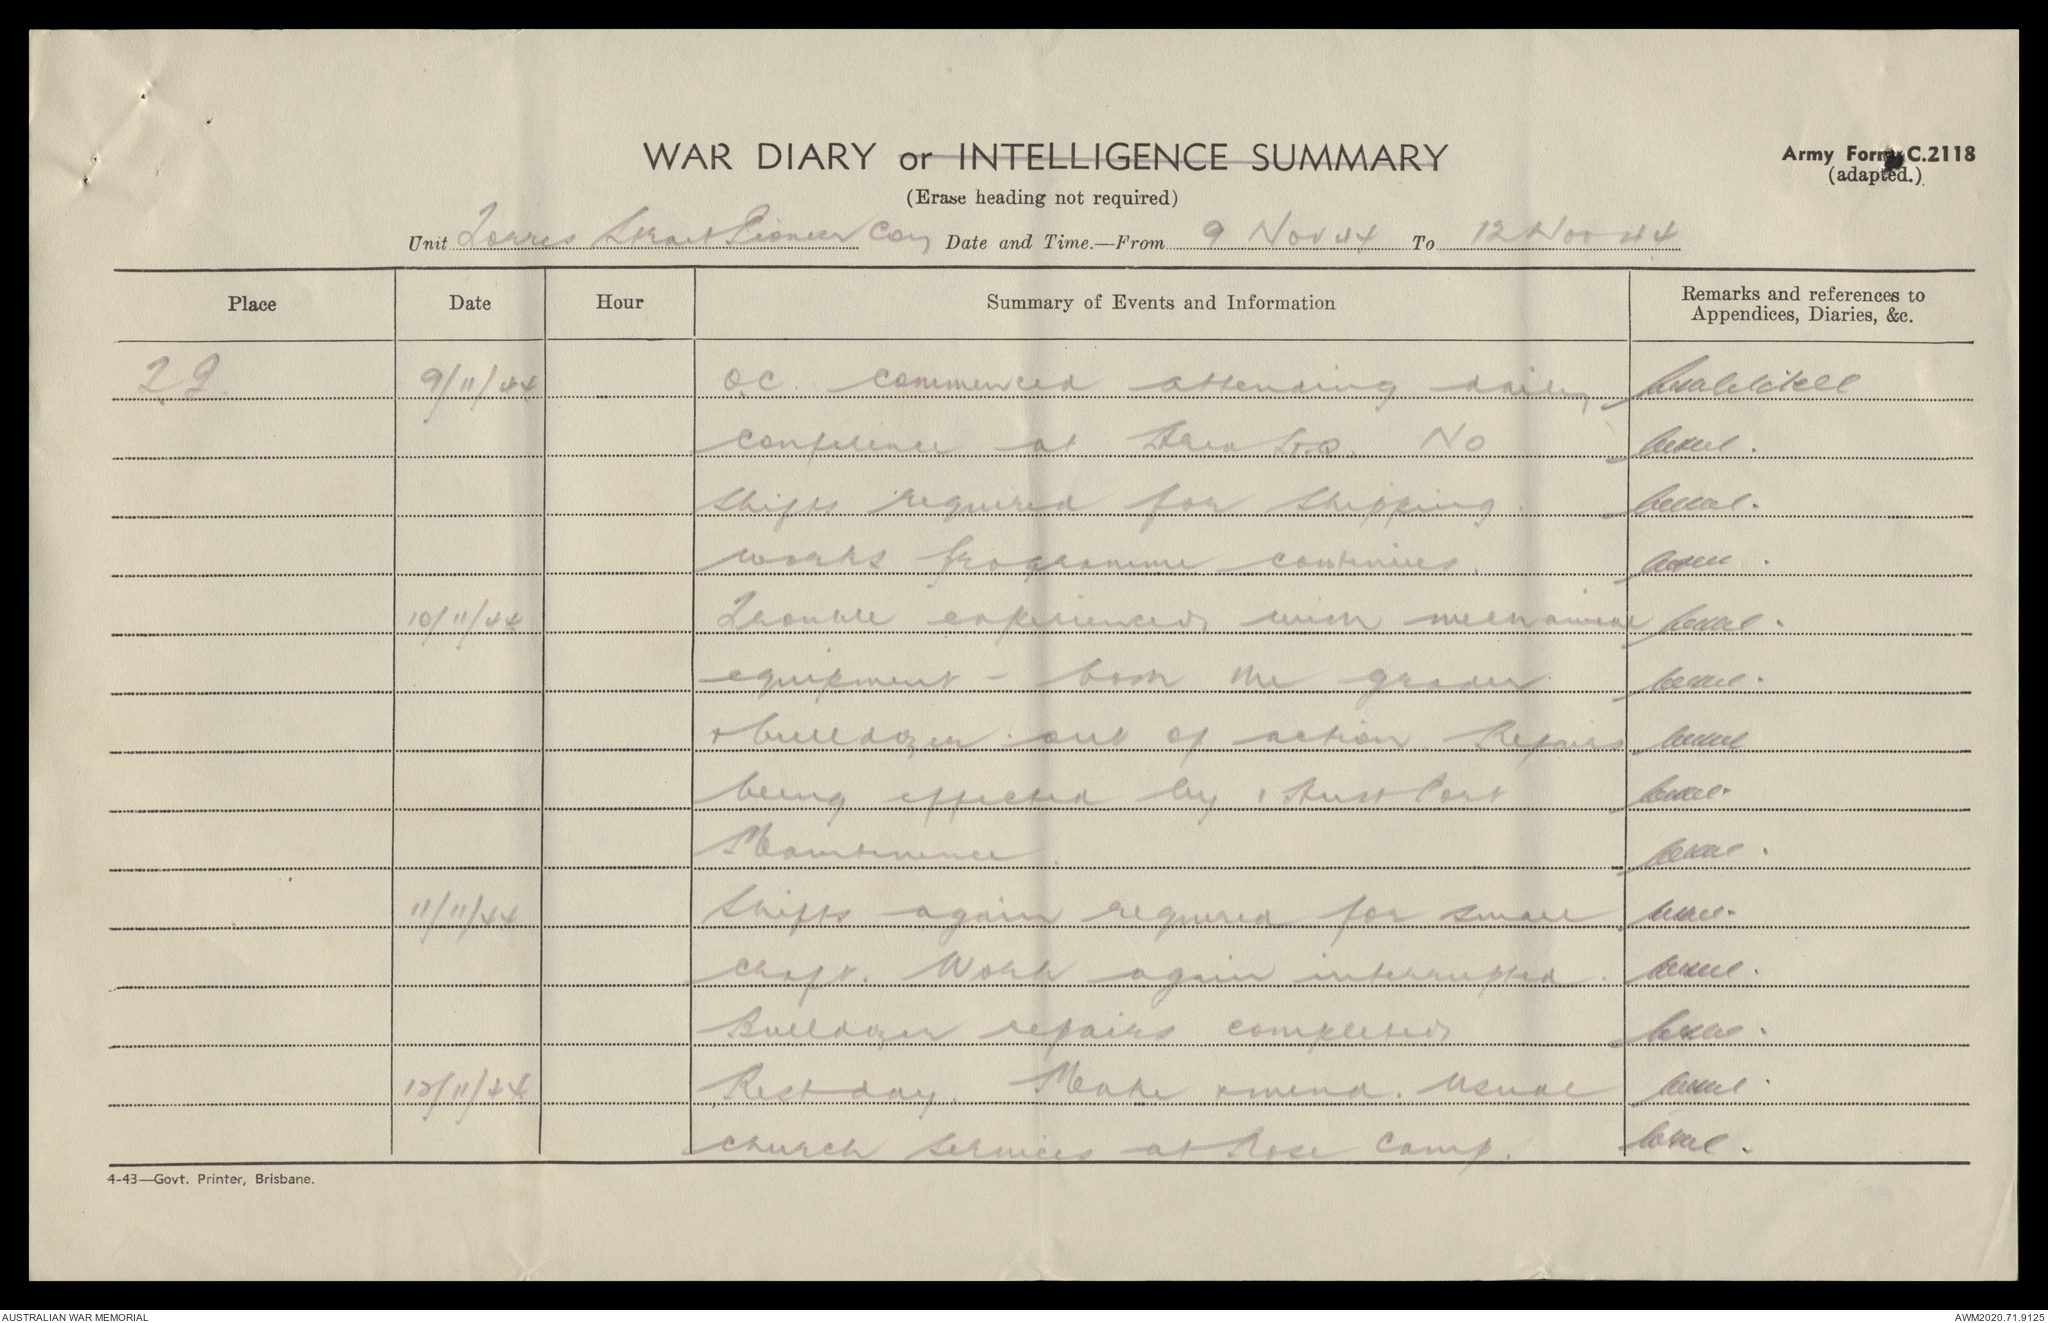 WAR DIARY or INTELLIGENCE SUMMARY
Army Form C.2118
(adapted.)
(Erase heading not required)
Unit Torres Strait Pioneer Coy Date and Time.—From 9 Nov 44 To 12 Nov 44
Place Date Hour Summary of Events and Information Remarks and references to
Appendices, Diaries, &c.
9/11/44 O.C. commenced attending daily
conference at Area H.Q. No
shifts required for shipping.
works programme continues.
10/11/44 Trouble experienced with mechanical
equipment - both the grader
+ bulldozer out of action. Repairs
being effected by 1 Aust Port
Maintenence.
11/11/44 Shifts again required for small
craft. Work again interrupted.
Bulldozer repairs completed
12/11/44 Rest day. Make + mend. Usual
church services at Rose Camp.
4-43—Govt. Printer, Brisbane.
AUSTRALIAN WAR MEMORIAL
AWM2020.71.9125